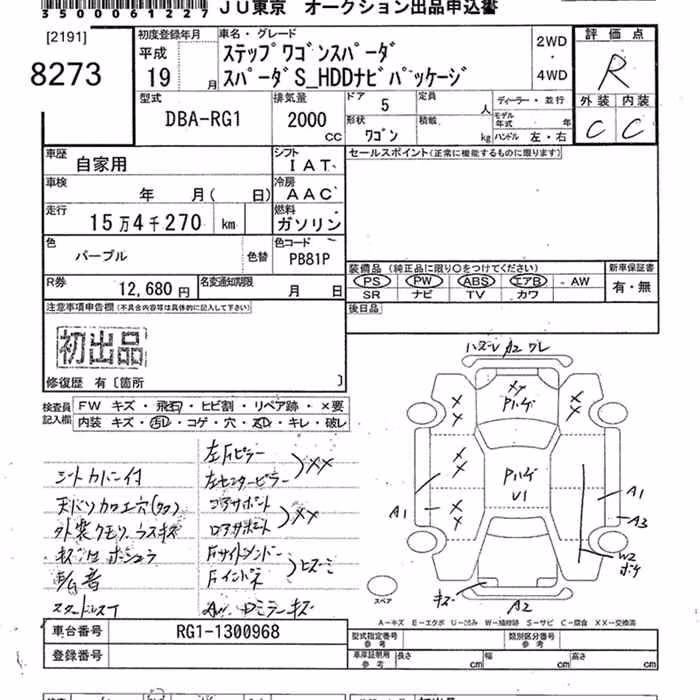 3500061227 JU東京 オークション出品申込書
[2191]
8273
初度登録年月
平成
19 月
車名・グレード
ステップワゴンスパーダ
スパーダS_HDDナビパッケージ
2WD
・
4WD
評価点
R
外装 内装
C C
型式
DBA-RG1
排気量
2000
CC
ドア 5
定員 人
形状
ワゴン
積載 kg
ディーラー・並行
モデル年式 年
ハンドル 左・右
車歴 自家用
シフト IAT
車検 年 月( 日)
冷房 AAC
走行 15万4千270 km
燃料 ガソリン
色 パープル 色替
色コード PB81P
R券 12,680円
名変通知期限 月 日
セールスポイント(正常に機能するものに限ります)
装備品(純正品に限り○をつけてください)
PS PW ABS エアB ・ AW
SR ナビ TV カワ
新車保証書
有・無
後日品
注意事項申告欄(不具合内容等は具体的に記入して下さい)
初出品
修復歴 有〔箇所 〕
検査員記入欄
FW キズ・飛石・ヒビ割・リペア跡・×要
内装 キズ・汚レ・コゲ・穴・キレ・破レ
ハズレ A2 ワレ
シートカバー付
左Fピラー
左センターピラー
XX
コアサポート
ロアサポート
XX
Fサイドメンバー
Fインパネ
スタッドレス
XX
XX
XX
XX
XX
A1
A1
A3
U1
W2
キズ
A2
スペア
A-キズ E-エクボ U-凹み W-補修跡 S-サビ C-腐食 XX-交換済
車台番号 RG1-1300968
登録番号
型式指定番号 参考
類別区分番号 参考
車庫証明用 参考
長さ cm 幅 cm 高さ cm